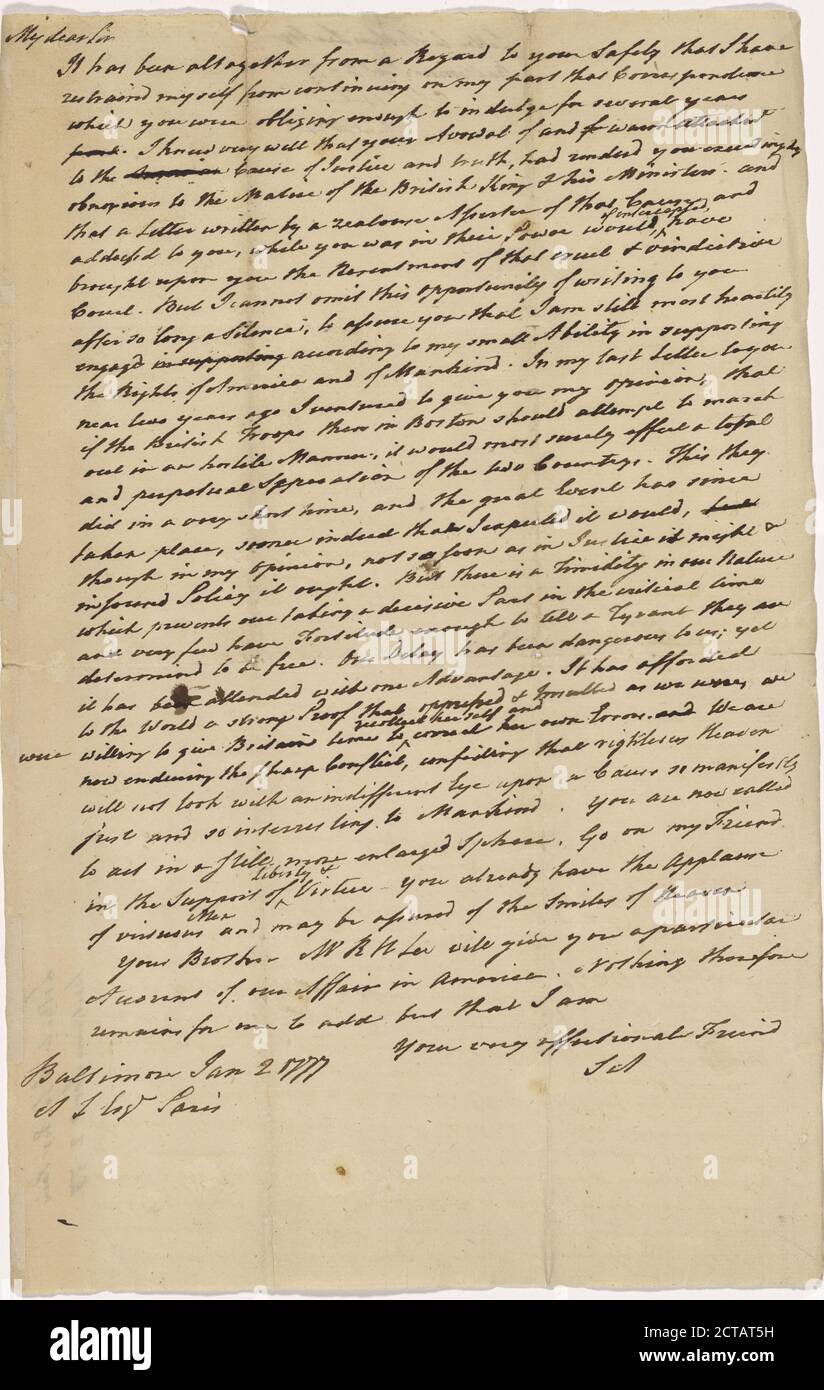 My dear Sir
It has been altogether from a Regard to your Safety that I have
restraind myself from continuing on my part that Correspondence
which you were obliging enough to indulge for several years
I knew very well that your Avowal of and warm attachmt
to the Cause of Justice and truth, had renderd you exceedingly
obnoxious to the Malice of the British King & his Ministers. and
that a Letter written by a zealous Assertor of that Cause, and
addressd to you, while you was in their Power would, if intercepted, have
brought upon you the Resentment of that cruel & vindictive
Court. But I cannot omit this opportunity of writing to you
after so long a Silence, to assure you that I am still most heartily
engagd in supporting according to my small Ability in supporting
the Rights of America and of Mankind. In my last Letter to you
near two years ago I ventured to give you my opinion, that
if the British Troops then in Boston should attempt to march
out in an hostile Manner, it would most surely effect a total
and perpetual Separation of the two Countrys. This they
did in a very short time, and the great Event has since
taken place, sooner indeed than I expected it would,
though in my opinion, not so soon as in Justice it might &
in sound Policy it ought. But there is a Timidity in our Nature
which prevents our taking a decisive Part in the critical time
and very few have Fortitude enough to tell a Tyrant they are
determind to be free. Our Delay has been dangerous to us; yet
it has been attended with one Advantage. It has afforded
to the World a strong Proof that oppressd & insulted as we were, we
were willing to give Britain time to recollect herself and correct her own Errors. and We are
now enduring the sharp Conflict, confiding that righteous Heaven
will not look with an indifferent Eye upon a Cause so manifestly
just and so interresting to Mankind. You are now called
to act in a still more enlarged Sphere. Go on my Friend
in the Support of Liberty & Virtue - you already have the Applause
of virtuous Men and may be assured of the Smiles of Heaven
Your Brother Mr R H Lee will give you a particular
Account of our Affairs in America. Nothing therefore
remains for me to add but that I am
your very affectionate Friend
S A
Baltimore Jan 2 1777
A L Esqr Paris
alamy
Image ID: 2CTAT5H
www.alamy.com